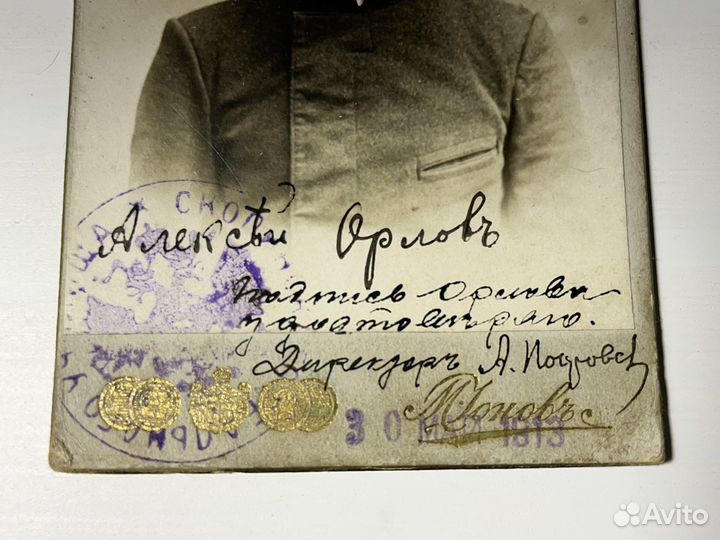 Алексѣй Орловъ
Подпись Орлова
удостовѣряю.
Директоръ А. Покровск
М. Іоновъ
30 МАЯ 1913
Avito